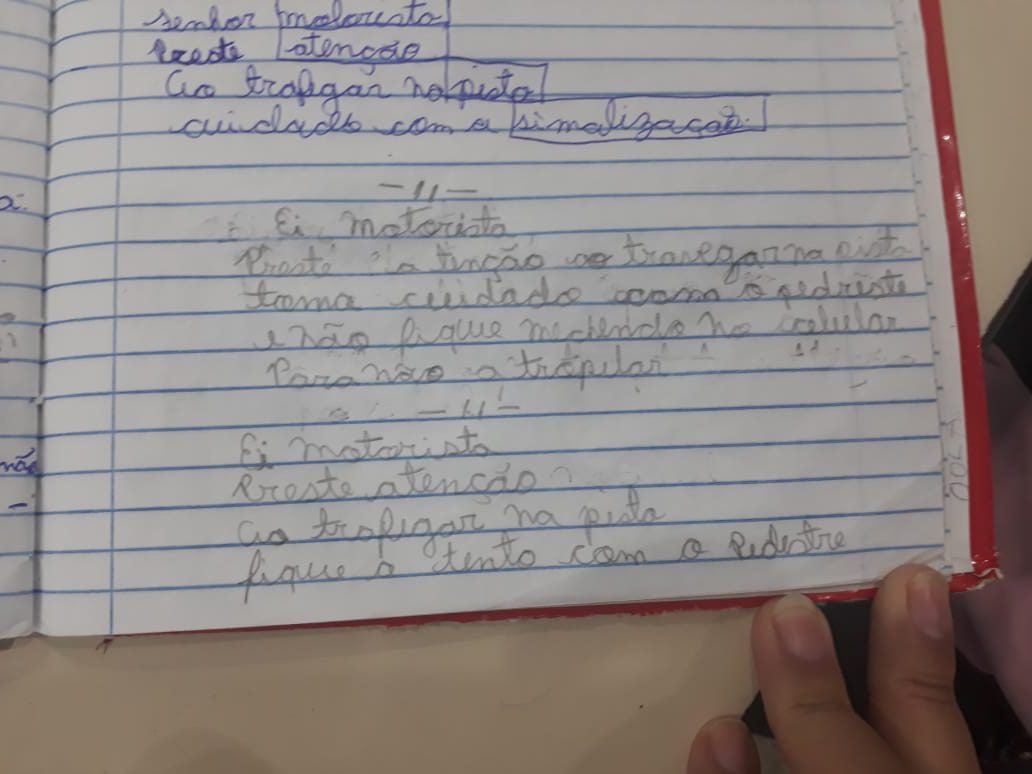 senhor motorista
Preste atenção
Ao trafigar na pista
cuidado com a simalização.
a.
— 11 —
Ei motorista
Preste a tenção ao travegar na pista
toma cuidado com o pedreste
e não fique mechendo no celular
Para não a tropelar
— 11 —
Ei motorista
não
Preste atenção
Ao trafigar na pista
fique a tento com o Pedestre